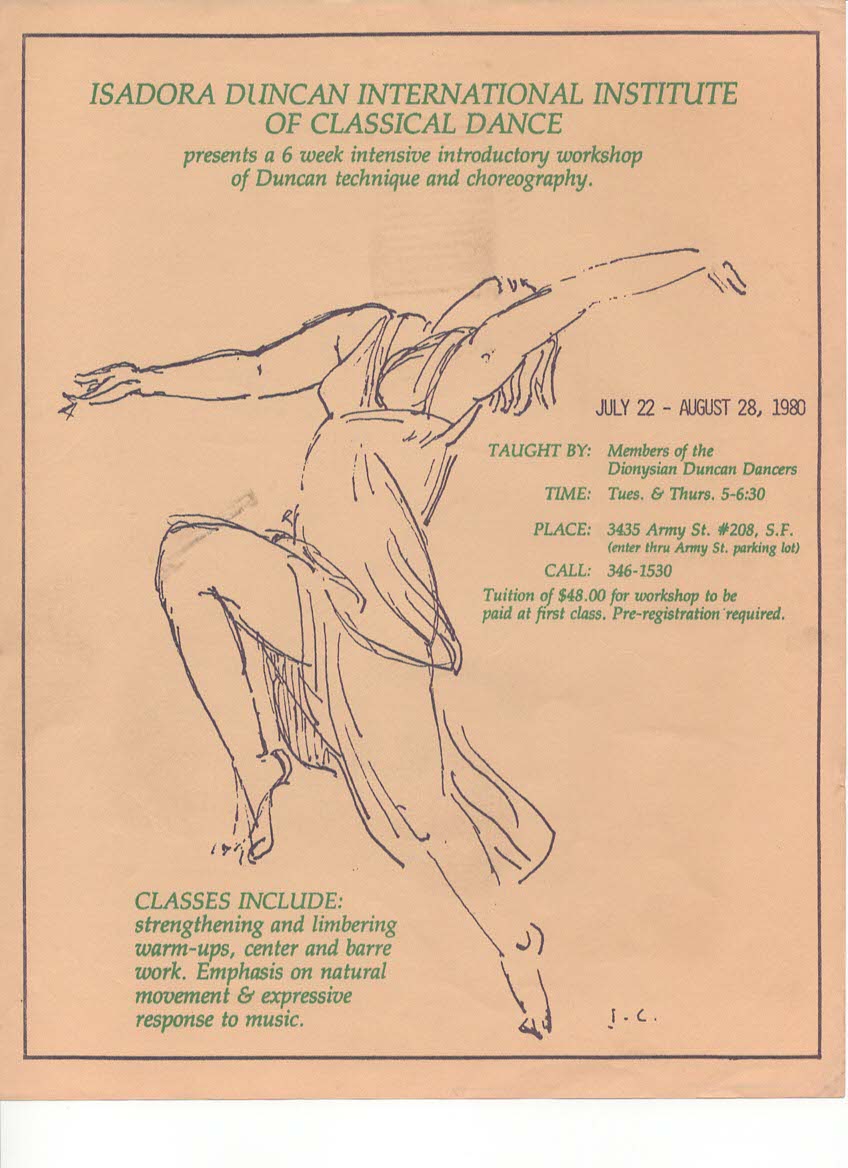 ISADORA DUNCAN INTERNATIONAL INSTITUTE
OF CLASSICAL DANCE
presents a 6 week intensive introductory workshop
of Duncan technique and choreography.
JULY 22 - AUGUST 28, 1980
TAUGHT BY: Members of the
Dionysian Duncan Dancers
TIME: Tues. & Thurs. 5-6:30
PLACE: 3435 Army St. #208, S.F.
(enter thru Army St. parking lot)
CALL: 346-1530
Tuition of $48.00 for workshop to be
paid at first class. Pre-registration required.
CLASSES INCLUDE:
strengthening and limbering
warm-ups, center and barre
work. Emphasis on natural
movement & expressive
response to music.
I.C.